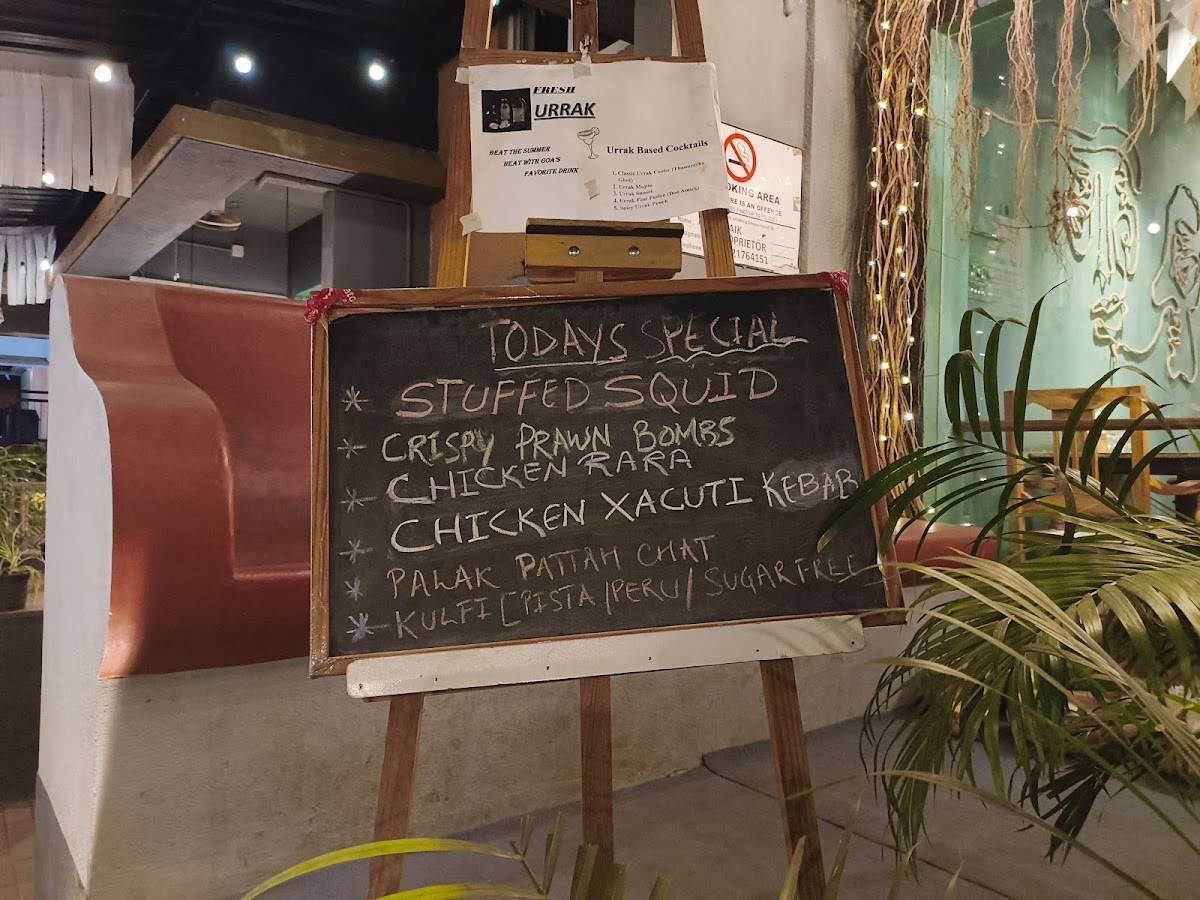 FRESH
URRAK
BEAT THE SUMMER
HEAT WITH GOA'S
FAVORITE DRINK
Urrak Based Cocktails
1. Classic Urrak Cooler
2. Urrak Mojito
3. Urrak Sunset
4. Urrak Fruit Fusion
5. Spicy Urrak Punch
OKING AREA
RE IS AN OFFENCE
AIK
OPRIETOR
21764151
TODAYS SPECIAL
* STUFFED SQUID
* CRISPY PRAWN BOMBS
* CHICKEN RARA
* CHICKEN XACUTI KEBAB
* PALAK PATTAH CHAT
* KULFI [PISTA/PERU/SUGARFREE]